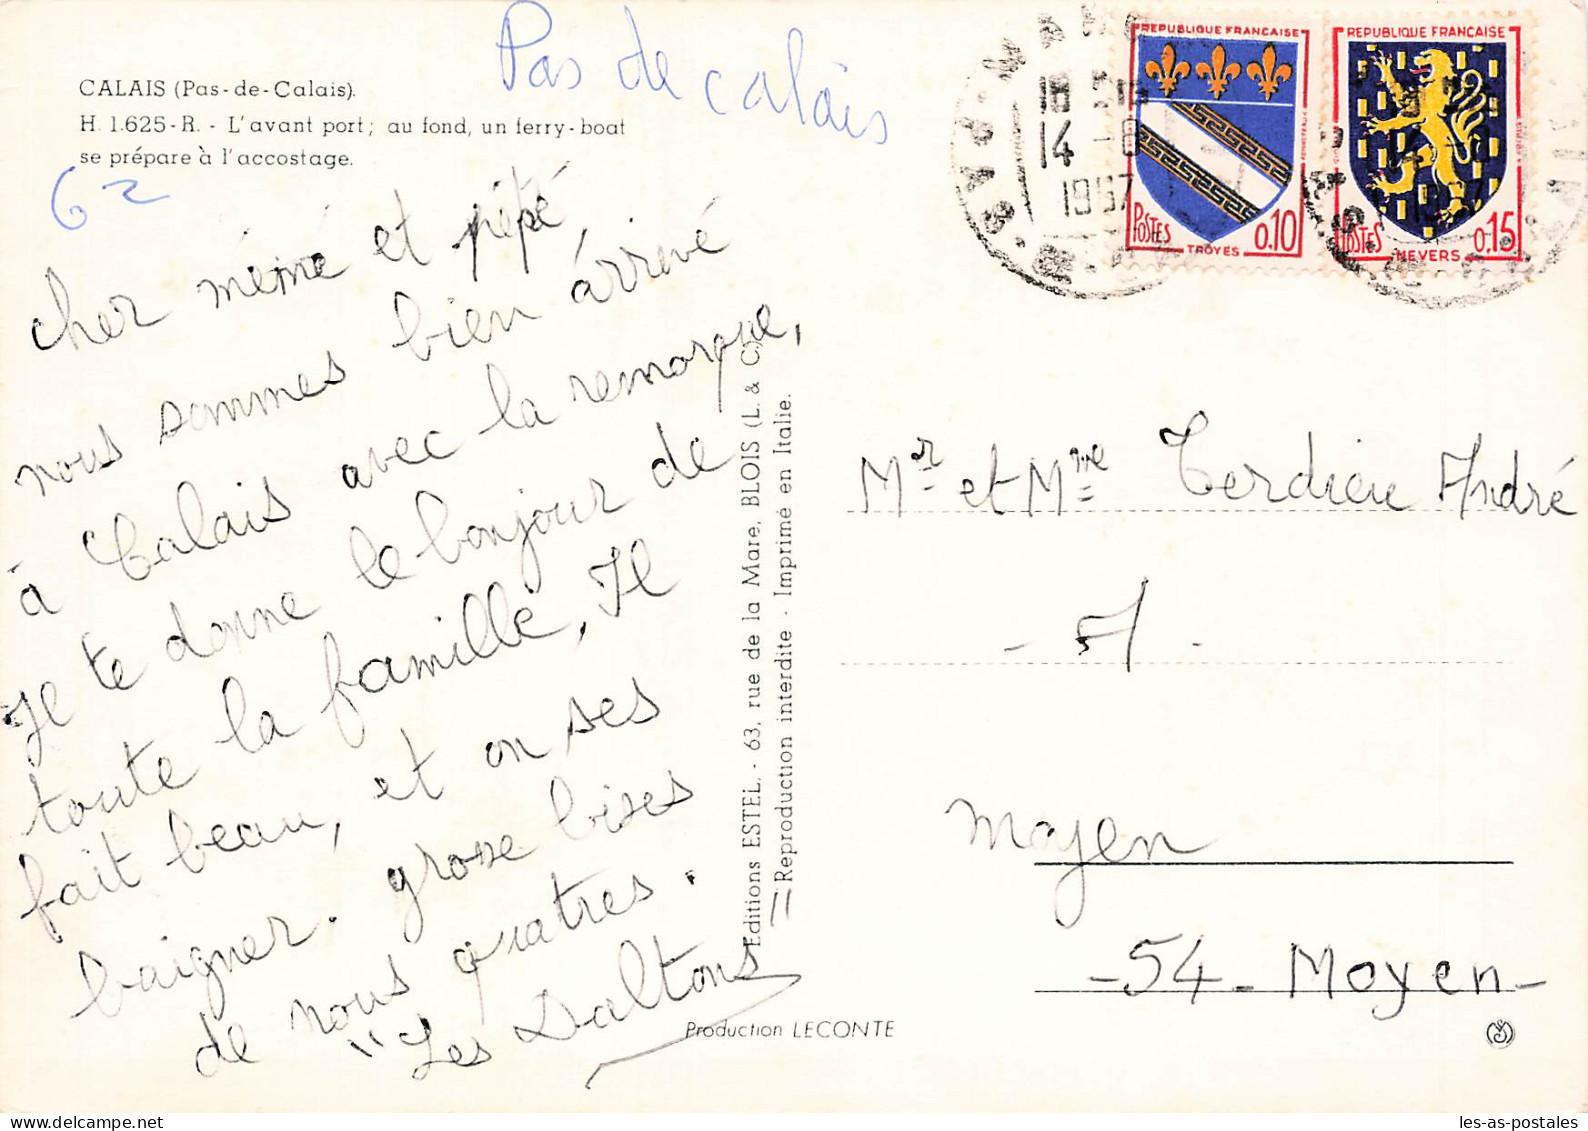 Pas de calais
CALAIS (Pas-de-Calais).
H. 1.625-R. - L'avant port; au fond, un ferry-boat
se prépare à l'accostage.
62
cher mémé et pépé,
nous sommes bien arrivé
à Calais avec la remorque,
Je te donne le bonjour de
toute la famille, Il
fait beau, et on ses
baigner. grosse bises
de nous quatres.
"Les Daltons"
Editions ESTEL. - 63, rue de la Mare, BLOIS (L. & C.)
Reproduction interdite - Imprimé en Italie.
Production LECONTE
REPUBLIQUE FRANÇAISE
POSTES 0.10
TROYES
REPUBLIQUE FRANÇAISE
POSTES 0.15
NEVERS
14 -8
1967
Mr et Mme Terdieu André
- A -
Moyen
-54- Moyen-
les-as-postales